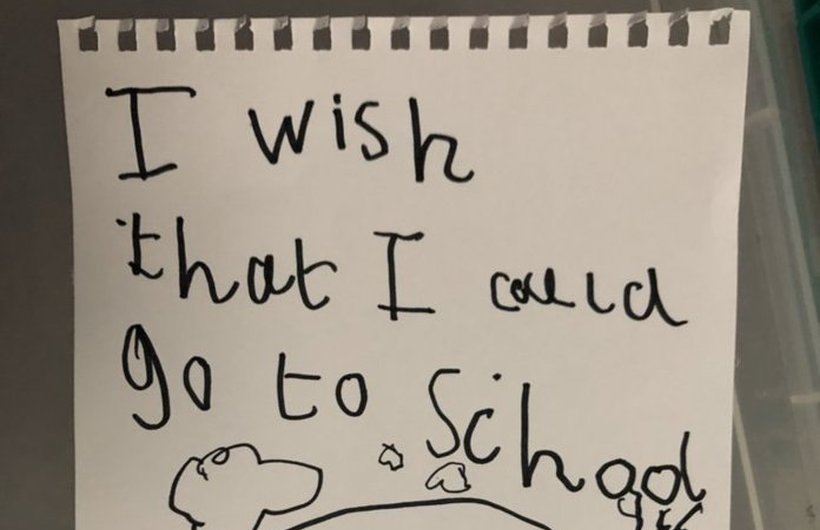 I wish
that I could
go to School